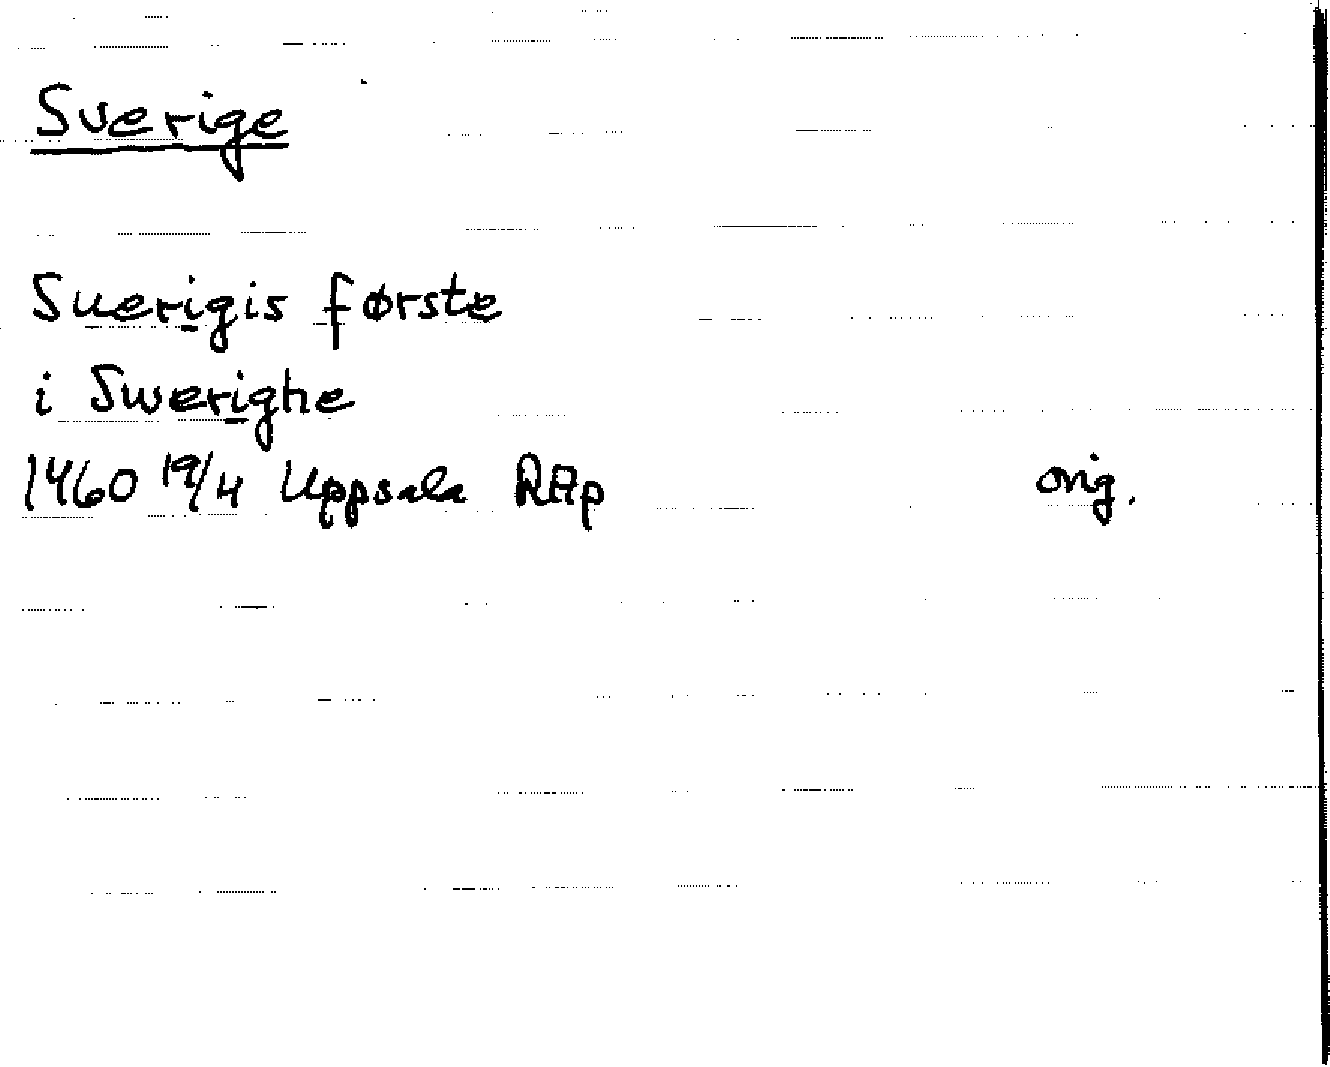 Sverige
Suerigis første
i Swerighe
1460 19/4 Uppsala RAp orig.